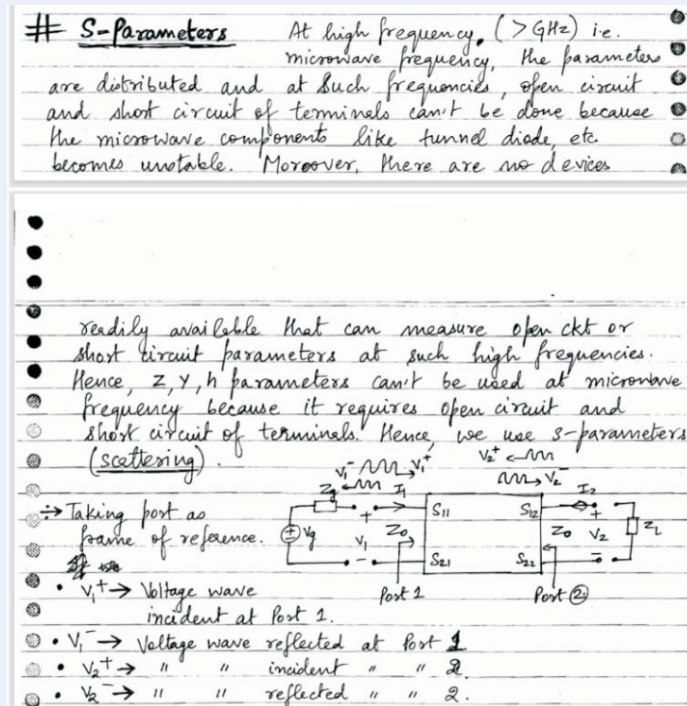 # S-Parameters At high frequency, (>GHz) i.e.
microwave frequency, the parameters
are distributed and at such frequencies, open circuit
and short circuit of terminals can't be done because
the microwave components like tunnel diode, etc.
becomes unstable. Moreover, there are no devices
readily available that can measure open ckt or
short circuit parameters at such high frequencies.
Hence, Z, Y, h parameters can't be used at microwave
frequency because it requires open circuit and
short circuit of terminals. Hence, we use s-parameters
(scattering).
V₁⁻ V₁⁺ V₂⁺ V₂⁻
Zg I₁ S₁₁ S₁₂ I₂
÷→ Taking port as
frame of reference.
Vg + V₁ - Z₀ S₂₁ S₂₂ Z₀ + V₂ - ZL
Port 1 Port ②
• V₁⁺ → Voltage wave
incident at Port 1.
• V₁⁻ → Voltage wave reflected at Port 1
• V₂⁺ → " " incident " " 2.
• V₂⁻ → " " reflected " " 2.